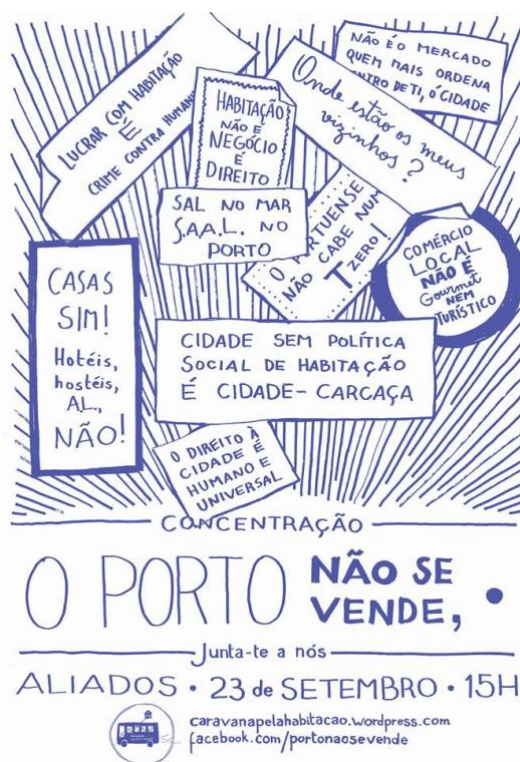 LUCRAR COM HABITAÇÃO
É
CRIME CONTRA HUMAN
HABITAÇÃO
NÃO É
NEGÓCIO
É
DIREITO
Onde estão os meus
vizinhos?
NÃO É O MERCADO
QUEM MAIS ORDENA
NTRO DE TI, Ó CIDADE
SAL NO MAR
S.A.A.L. NO
PORTO
O PORTUENSE
NÃO CABE NUM
T ZERO!
COMÉRCIO
LOCAL
NÃO É
Gourmet
NEM
TURÍSTICO
CASAS
SIM!
Hotéis,
hostéis,
AL.,
NÃO!
CIDADE SEM POLÍTICA
SOCIAL DE HABITAÇÃO
É CIDADE-CARCAÇA
O DIREITO À
CIDADE É
HUMANO E
UNIVERSAL
CONCENTRAÇÃO
O PORTO NÃO SE
VENDE,
Junta-te a nós
ALIADOS • 23 de SETEMBRO • 15H
caravanapelahabitacao.wordpress.com
facebook.com/portonaosevende